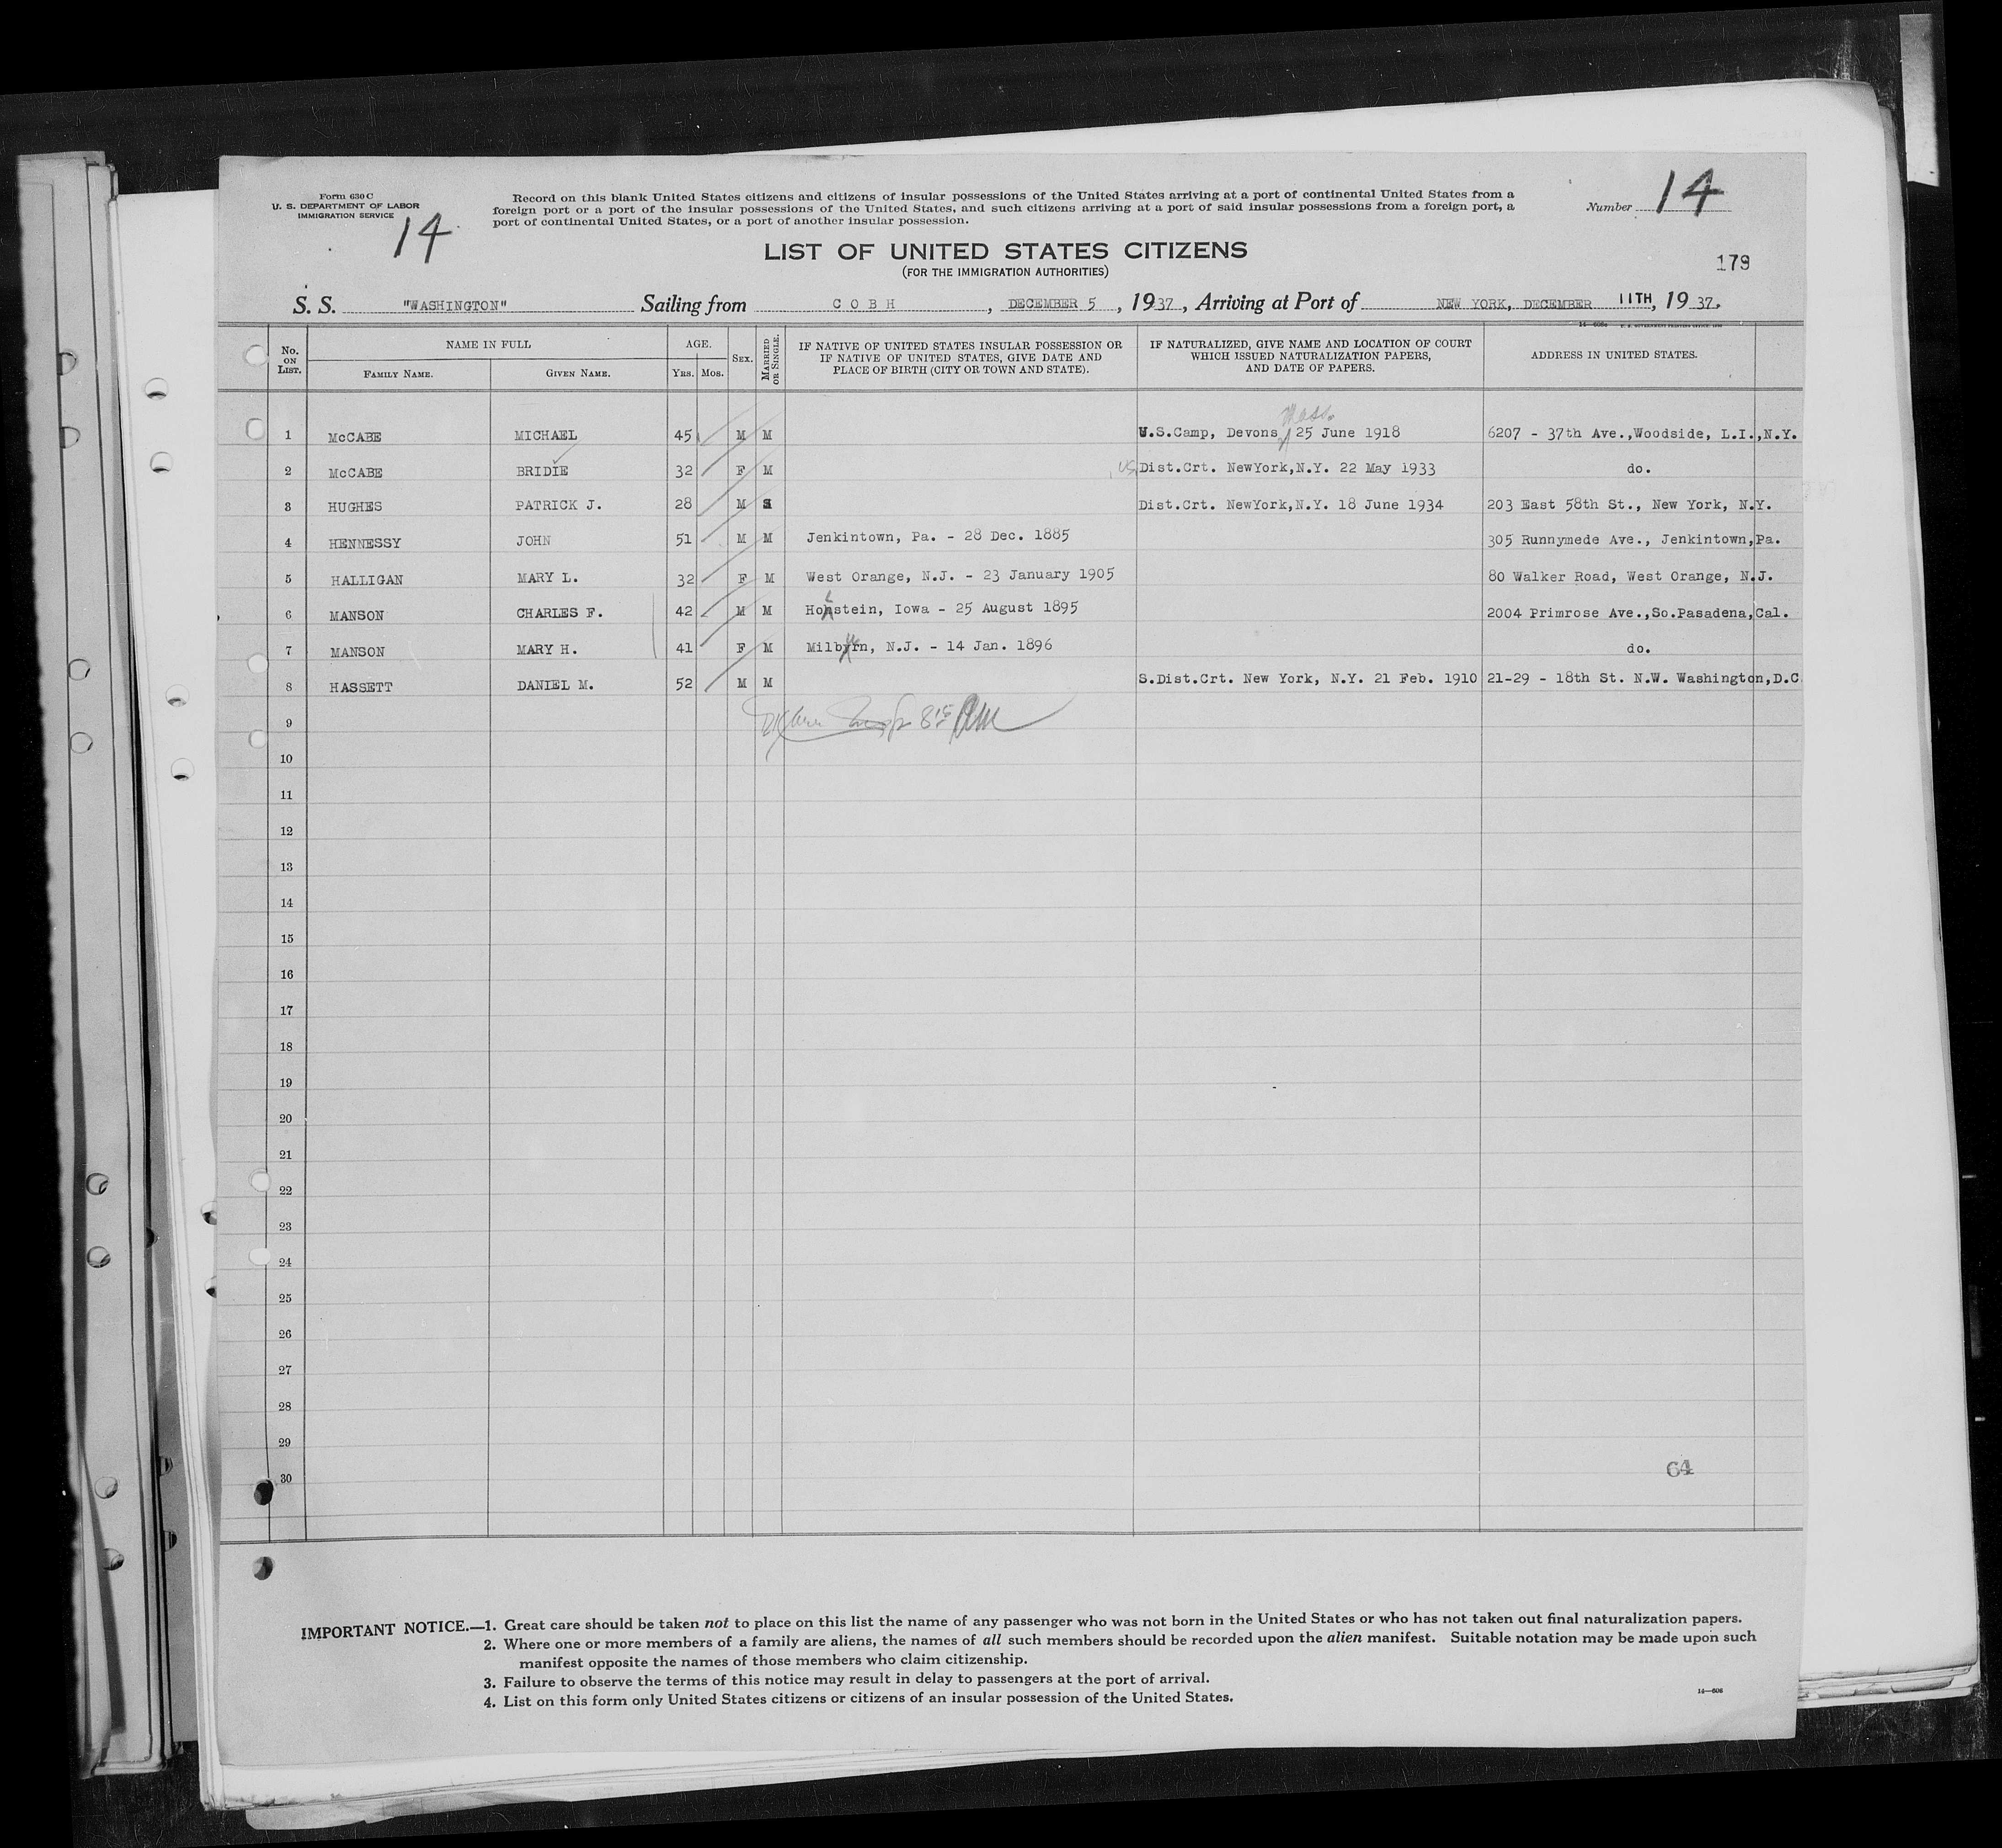 Form 630 C
U. S. DEPARTMENT OF LABOR
IMMIGRATION SERVICE
14
Record on this blank United States citizens and citizens of insular possessions of the United States arriving at a port of continental United States from a
foreign port or a port of the insular possessions of the United States, and such citizens arriving at a port of said insular possessions from a foreign port, a
port of continental United States, or a port of another insular possession.
Number 14
LIST OF UNITED STATES CITIZENS
(FOR THE IMMIGRATION AUTHORITIES)
179
S. S. "WASHINGTON" Sailing from COBH, DECEMBER 5, 1937, Arriving at Port of NEW YORK, DECEMBER 11TH, 1937.
No. ON LIST. NAME IN FULL FAMILY NAME. GIVEN NAME. AGE. YRS. MOS. SEX. MARRIED OR SINGLE. IF NATIVE OF UNITED STATES INSULAR POSSESSION OR IF NATIVE OF UNITED STATES, GIVE DATE AND PLACE OF BIRTH (CITY OR TOWN AND STATE). IF NATURALIZED, GIVE NAME AND LOCATION OF COURT WHICH ISSUED NATURALIZATION PAPERS, AND DATE OF PAPERS. ADDRESS IN UNITED STATES.
Mass.
1 McCABE MICHAEL 45 M M U.S.Camp, Devons 25 June 1918 6207 - 37th Ave.,Woodside, L.I.,N.Y.
2 McCABE BRIDIE 32 F M US Dist.Crt. NewYork,N.Y. 22 May 1933 do.
3 HUGHES PATRICK J. 28 M S Dist.Crt. NewYork,N.Y. 18 June 1934 203 East 58th St., New York, N.Y.
4 HENNESSY JOHN 51 M M Jenkintown, Pa. - 28 Dec. 1885 305 Runnymede Ave., Jenkintown,Pa.
5 HALLIGAN MARY L. 32 F M West Orange, N.J. - 23 January 1905 80 Walker Road, West Orange, N.J.
6 MANSON CHARLES F. 42 M M Holstein, Iowa - 25 August 1895 2004 Primrose Ave.,So.Pasadena,Cal.
7 MANSON MARY H. 41 F M Milburn, N.J. - 14 Jan. 1896 do.
8 HASSETT DANIEL M. 52 M M S.Dist.Crt. New York, N.Y. 21 Feb. 1910 21-29 - 18th St. N.W. Washington,D.C
9
10
11
12
13
14
15
16
17
18
19
20
21
22
23
24
25
26
27
28
29
30
64
IMPORTANT NOTICE.—1. Great care should be taken not to place on this list the name of any passenger who was not born in the United States or who has not taken out final naturalization papers.
2. Where one or more members of a family are aliens, the names of all such members should be recorded upon the alien manifest. Suitable notation may be made upon such
manifest opposite the names of those members who claim citizenship.
3. Failure to observe the terms of this notice may result in delay to passengers at the port of arrival.
4. List on this form only United States citizens or citizens of an insular possession of the United States.
14—606